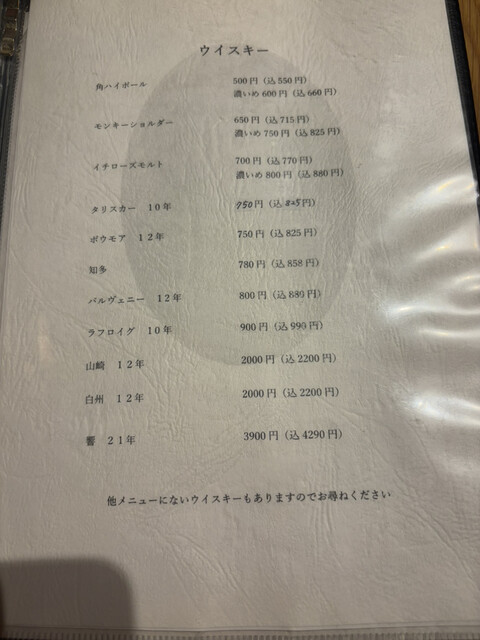 ウイスキー
角ハイボール 500円（込550円）
濃いめ600円（込660円）
モンキーショルダー 650円（込715円）
濃いめ750円（込825円）
イチローズモルト 700円（込770円）
濃いめ800円（込880円）
タリスカー 10年 750円（込825円）
ボウモア 12年 750円（込825円）
知多 780円（込858円）
バルヴェニー 12年 800円（込880円）
ラフロイグ 10年 900円（込990円）
山崎 12年 2000円（込2200円）
白州 12年 2000円（込2200円）
響 21年 3900円（込4290円）
他メニューにないウイスキーもありますのでお尋ねください